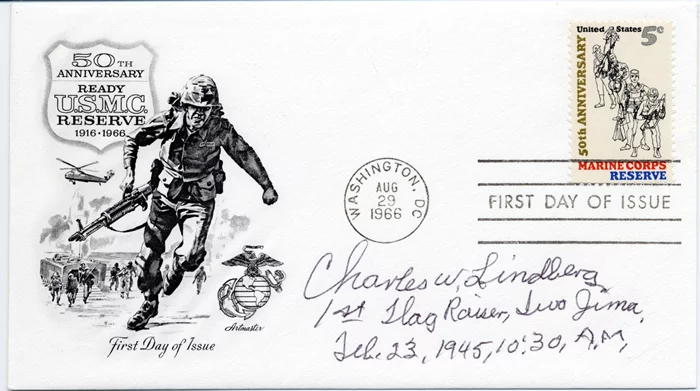 50TH
ANNIVERSARY
READY
U.S.M.C.
RESERVE
1916 · 1966
Artmaster
First Day of Issue
WASHINGTON, DC
AUG
29
1966
United States 5c
50th ANNIVERSARY
MARINE CORPS
RESERVE
FIRST DAY OF ISSUE
Charles W. Lindberg
1st Flag Raiser, Iwo Jima,
Feb. 23, 1945, 10:30, A.M,